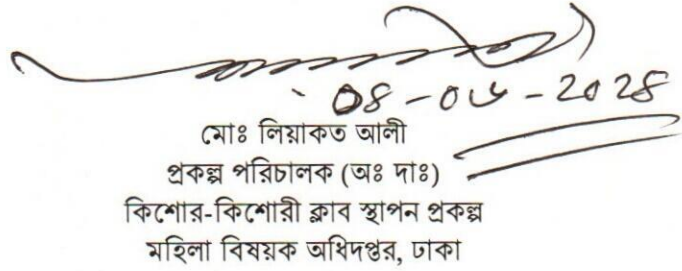 ০৪-০৬-২০২৪
মোঃ লিয়াকত আলী
প্রকল্প পরিচালক (অঃ দাঃ)
কিশোর-কিশোরী ক্লাব স্থাপন প্রকল্প
মহিলা বিষয়ক অধিদপ্তর, ঢাকা